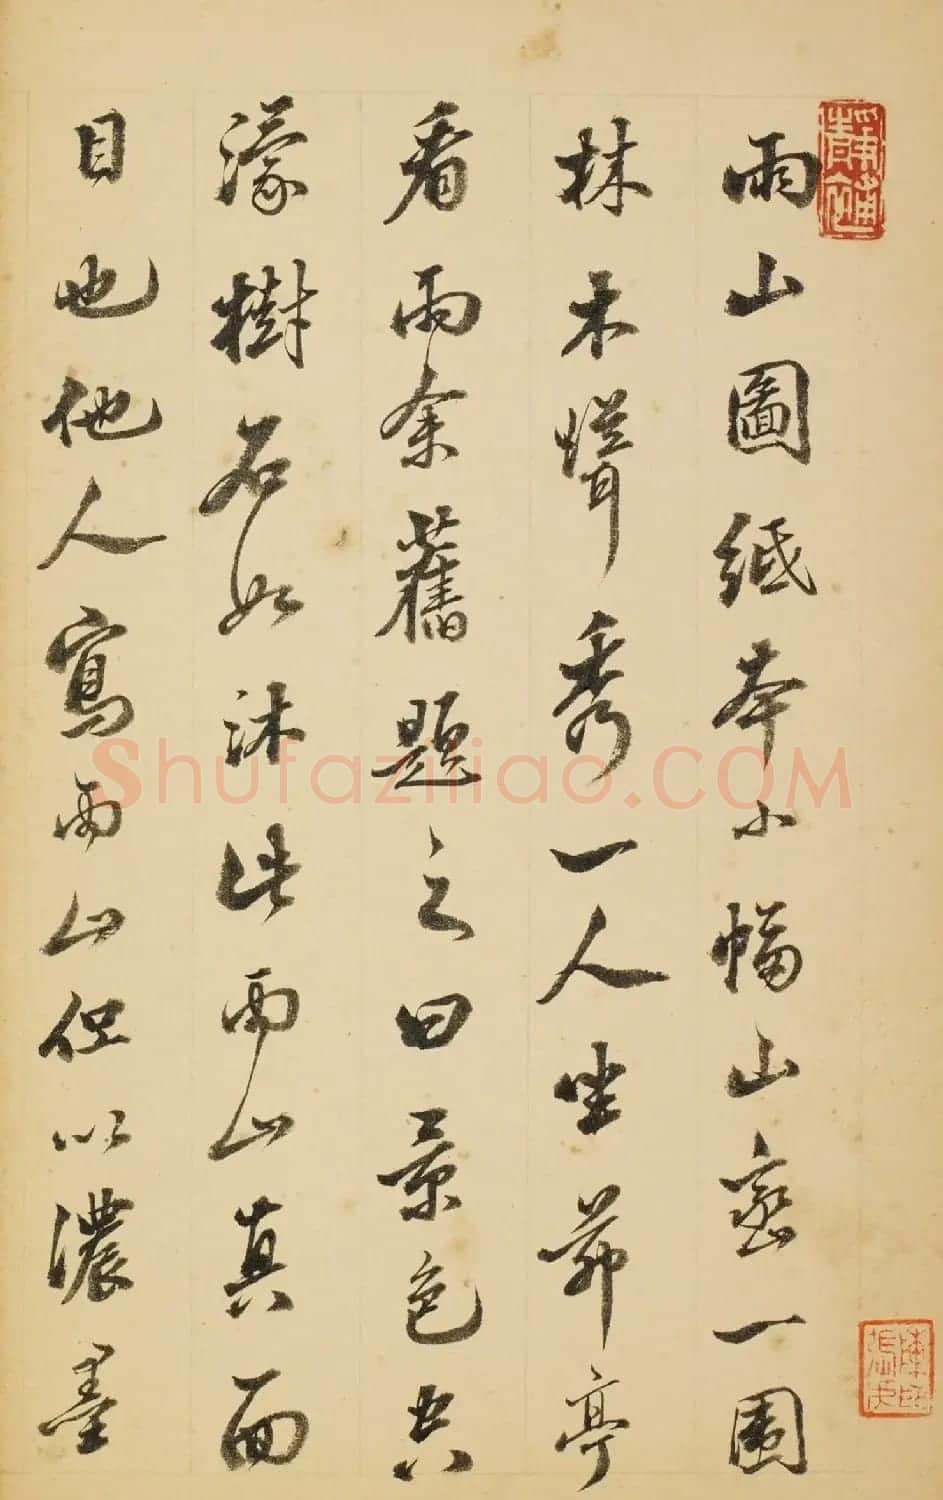 雨山圖紙本小幅山巒一圍
林木聳秀一人坐茅亭
看雨余舊題之曰景色空
濛樹石如沐此雨山真面
目也他人寫雨山但以濃墨
Shufaziliao.COM